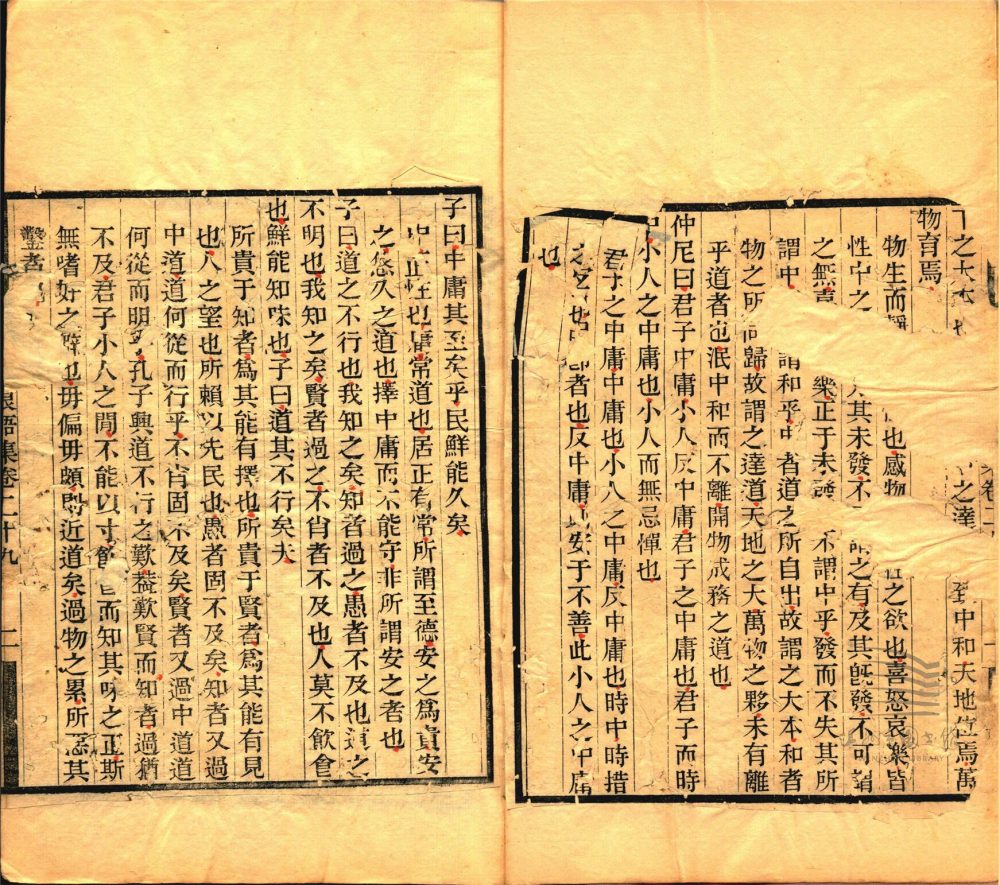 之大本
之達
中和天地位焉萬
物育焉
物生而靜
也感物
之欲也喜怒哀樂皆
性中之
其未發不
謂之有及其旣發不可謂
之無喜
樂正于未發
不謂中乎發而不失其所
謂中
謂和乎中者道之所自出故謂之大本和者
物之所同歸故謂之達道天地之大萬物之夥未有離
乎道者也泯中和而不離開物成務之道也
仲尼曰君子中庸小人反中庸君子之中庸也君子而時
中小人之中庸也小人而無忌憚也
君子之中庸中庸也小人之中庸反中庸也時中時措
之宜也
者也反中庸安于不善此小人之中庸
也
子曰中庸其至矣乎民鮮能久矣
中正也庸常道也居正有常所謂至德安之爲貴安
之悠久之道也擇中庸而不能守非所謂安之者也
子曰道之不行也我知之矣知者過之愚者不及也道之
不明也我知之矣賢者過之不肖者不及也人莫不飮食
也鮮能知味也子曰道其不行矣夫
所貴于知者爲其能有擇也所貴于賢者爲其能有見
也人之望也所賴以先民也愚者固不及矣知者又過
中道道何從而行乎不肖固不及矣賢者又過中道道
何從而明乎孔子興道不行之歎益歎賢而知者過猶
不及君子小人之間不能以寸飮食而知其味之正斯
無嗜好之
也毋偏毋頗則近道矣過物之累所惡其
鑿者
浪語集卷二十九
二